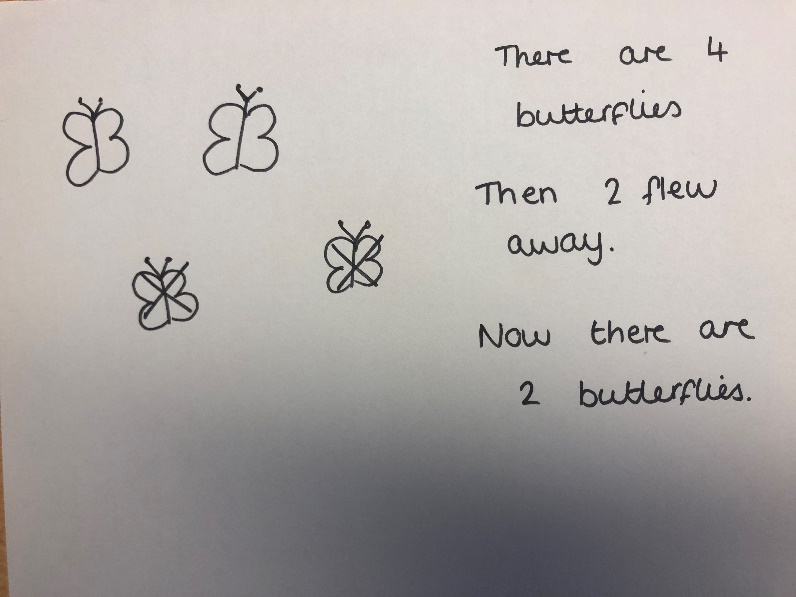 There are 4
butterflies
Then 2 flew
away.
Now there are
2 butterflies.